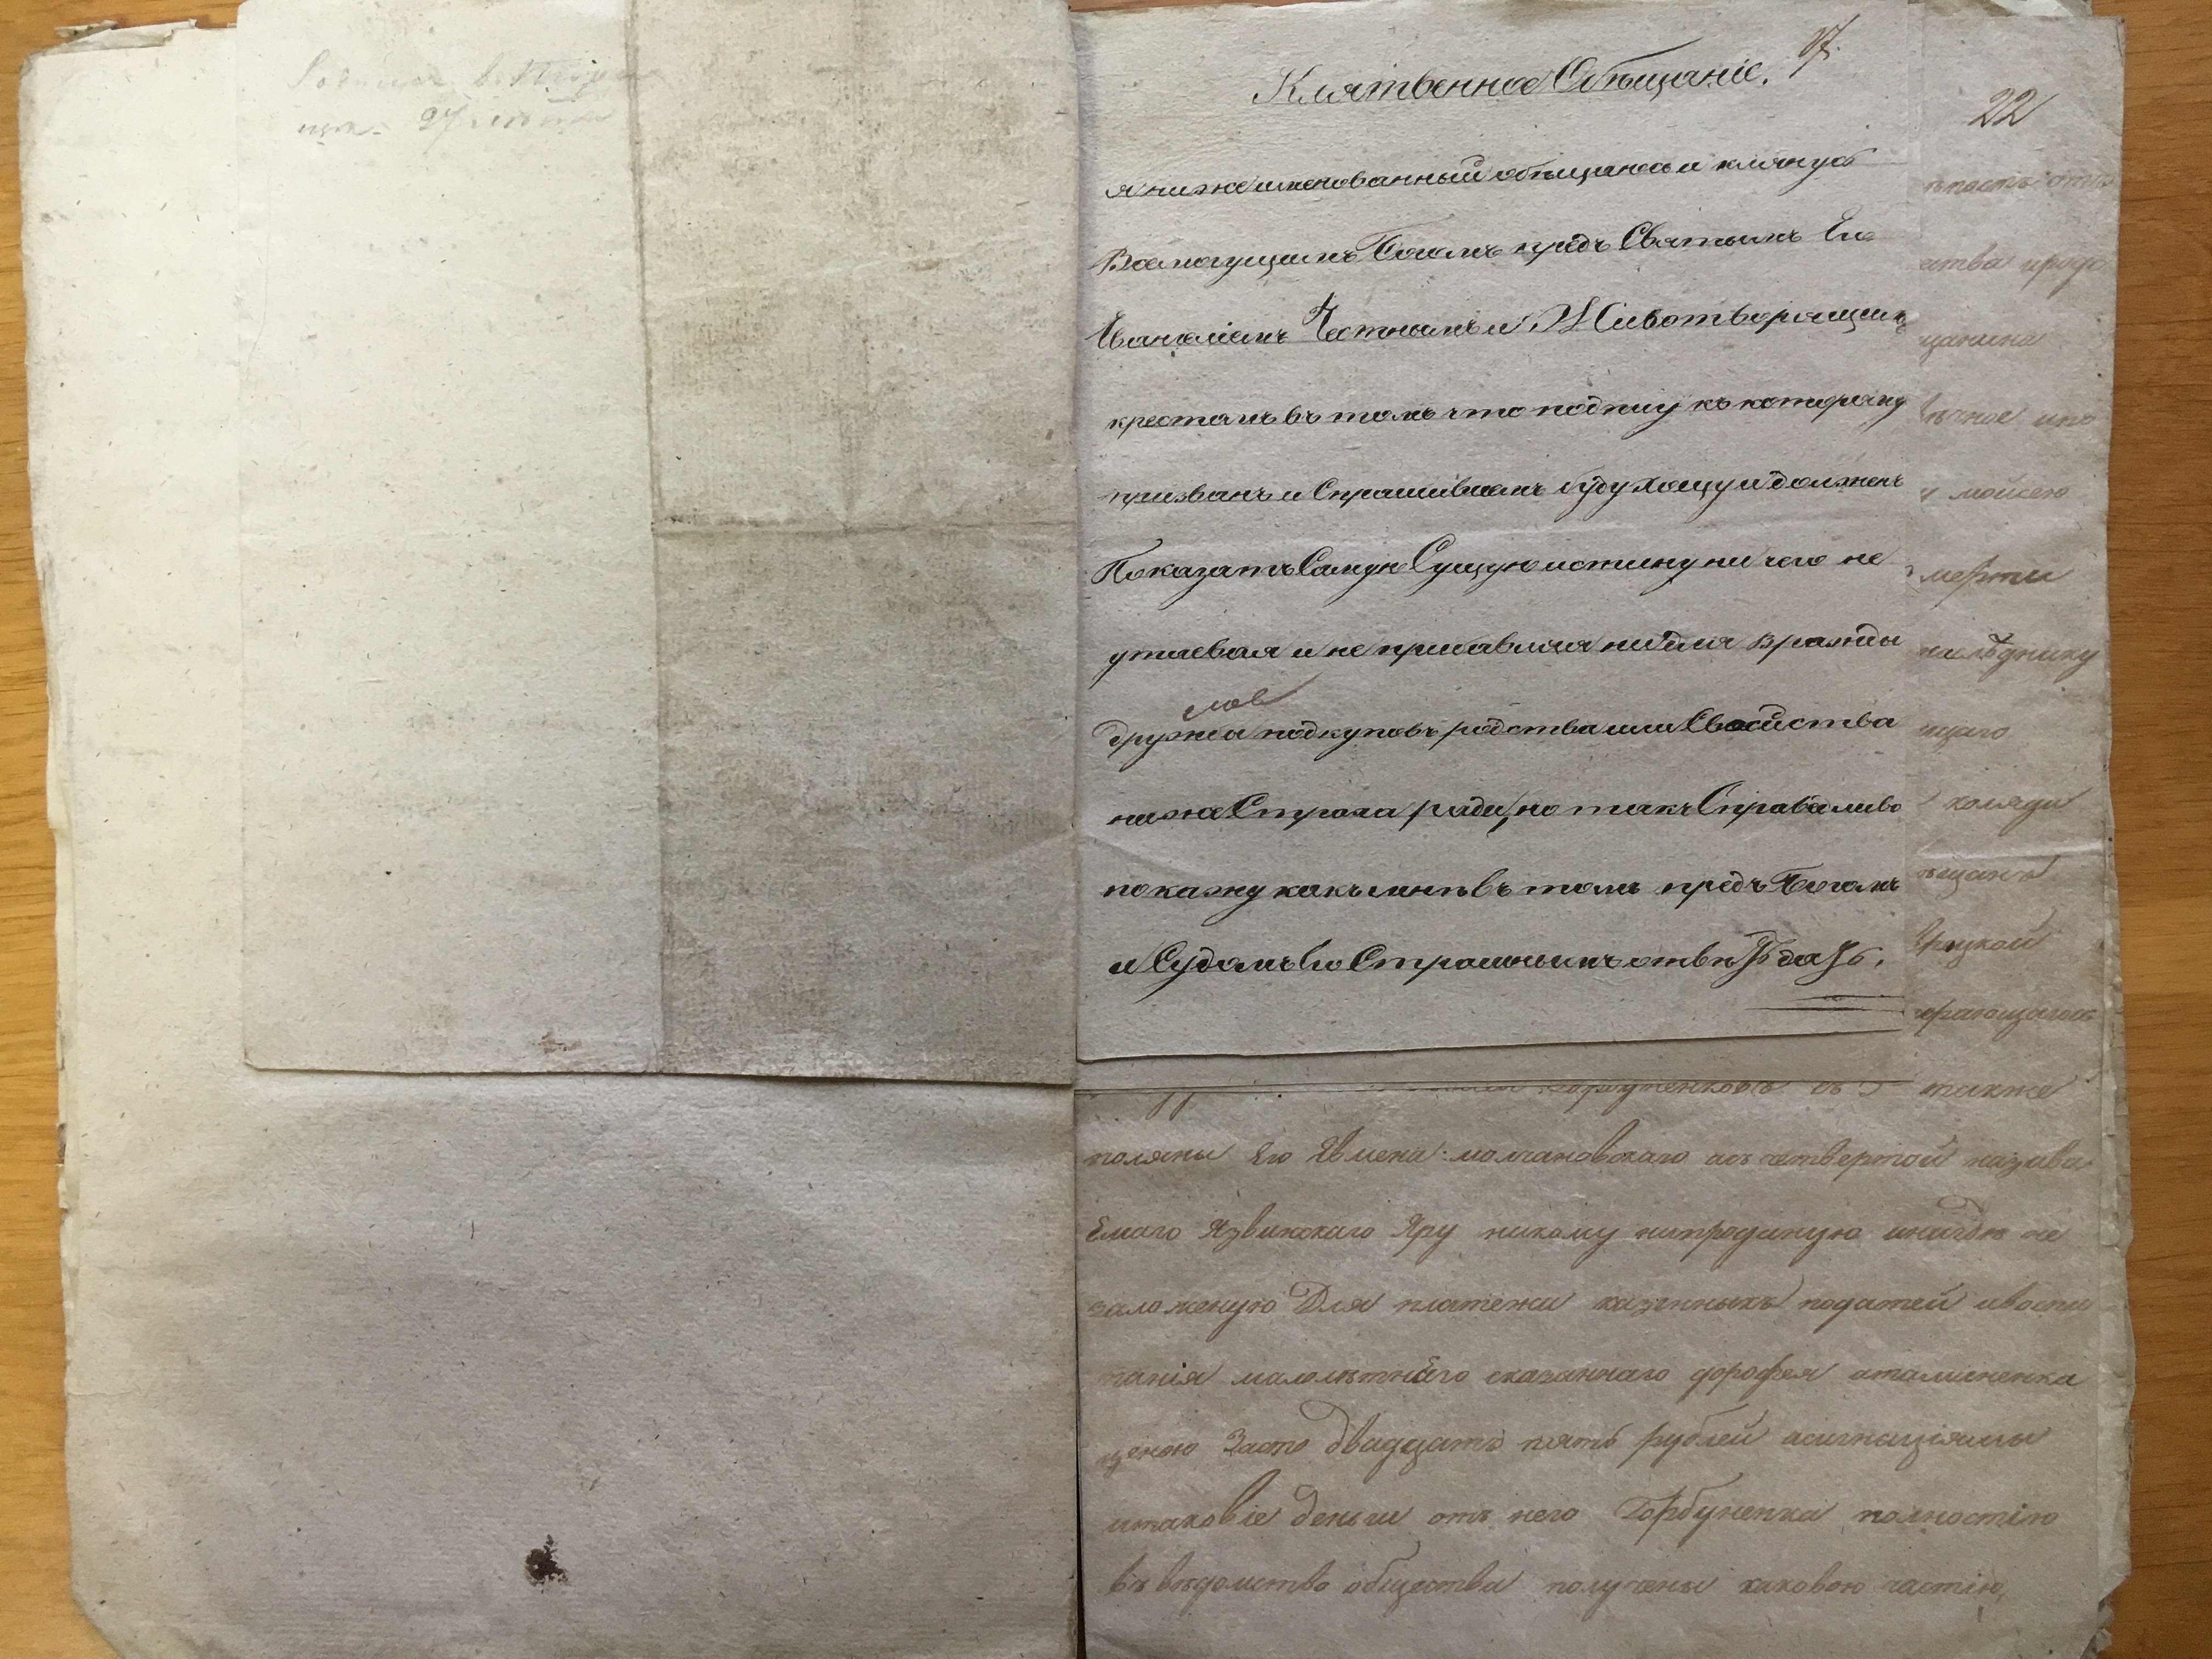 17.
Клятвенное Обѣщаніе.
22
я нижеименованный обѣщаюсь и клянусь
Всемогущимъ Богомъ предъ Святымъ Его
Евангеліемъ Честнымъ и Животворящимъ
крестомъ въ томъ что по дѣлу къ которому
призванъ и Спрашиваемъ буду хощу и долженъ
Показать Самую Сущую истину ни чего не
утаевая и не прибавляя ни для вражды
слов
дружбы подкуповъ родства или Свойства
ниже Страха ради, но такъ Справедливо
покажу какъ мнѣ въ томъ предъ Богомъ
и Судомъ Его Страшнымъ отвѣтъ дать.
щанина
смерти
наслѣднику
щаго
также
поляны Его Явмена молчановскаго изъ четвертой называ
Емаго Язвинскаго Яру никому непроданую инигдѣ не
заложеную Для платежа казенныхъ податей ивоспи
танія малолѣтнѣго сказаннаго дорофея атаманенка
ценою Засто двадцать пять рублей асигнаціямы
итаковіе деньги отъ него Горбуненка полностію
въ вѣдомство общества получены каковою частію